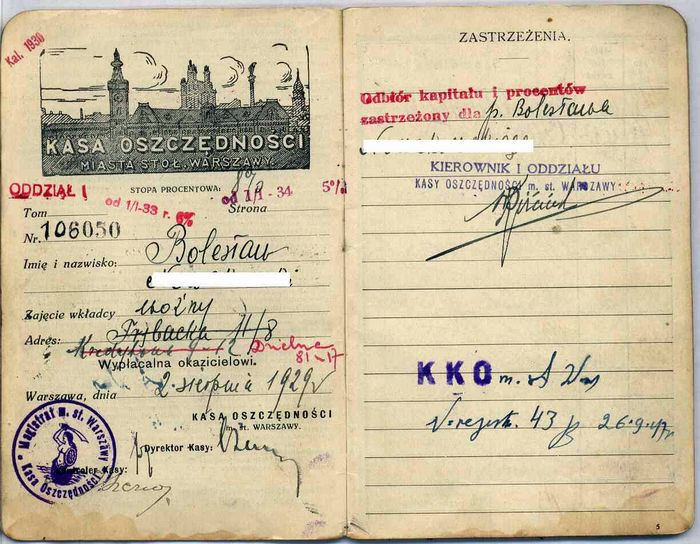 Kal. 1930
KASA OSZCZĘDNOŚCI
MIASTA STOŁ. WARSZAWY.
ODDZIAŁ I
STOPA PROCENTOWA: 8%
od 1/I-33 r. 6%
od 1/I - 34 5%
Tom Strona
Nr. 106050
Imię i nazwisko: Bolesław
Zajęcie wkładcy woźny
Adres: Rybacka 11/8
Dzielna
81-17
Wypłacalna okazicielowi.
Warszawa, dnia 2 sierpnia 1929 r
KASA OSZCZĘDNOŚCI
m. st. WARSZAWY.
Dyrektor Kasy:
Kontroler Kasy:
Magistrat m. st. Warszawy
Kasa Oszczędności
ZASTRZEŻENIA.
Odbiór kapitału i procentów
zastrzeżony dla p. Bolesława
KIEROWNIK I ODDZIAŁU
KASY OSZCZĘDNOŚCI m. st. WARSZAWY
KKO m. st. War
43 26.9.47
5